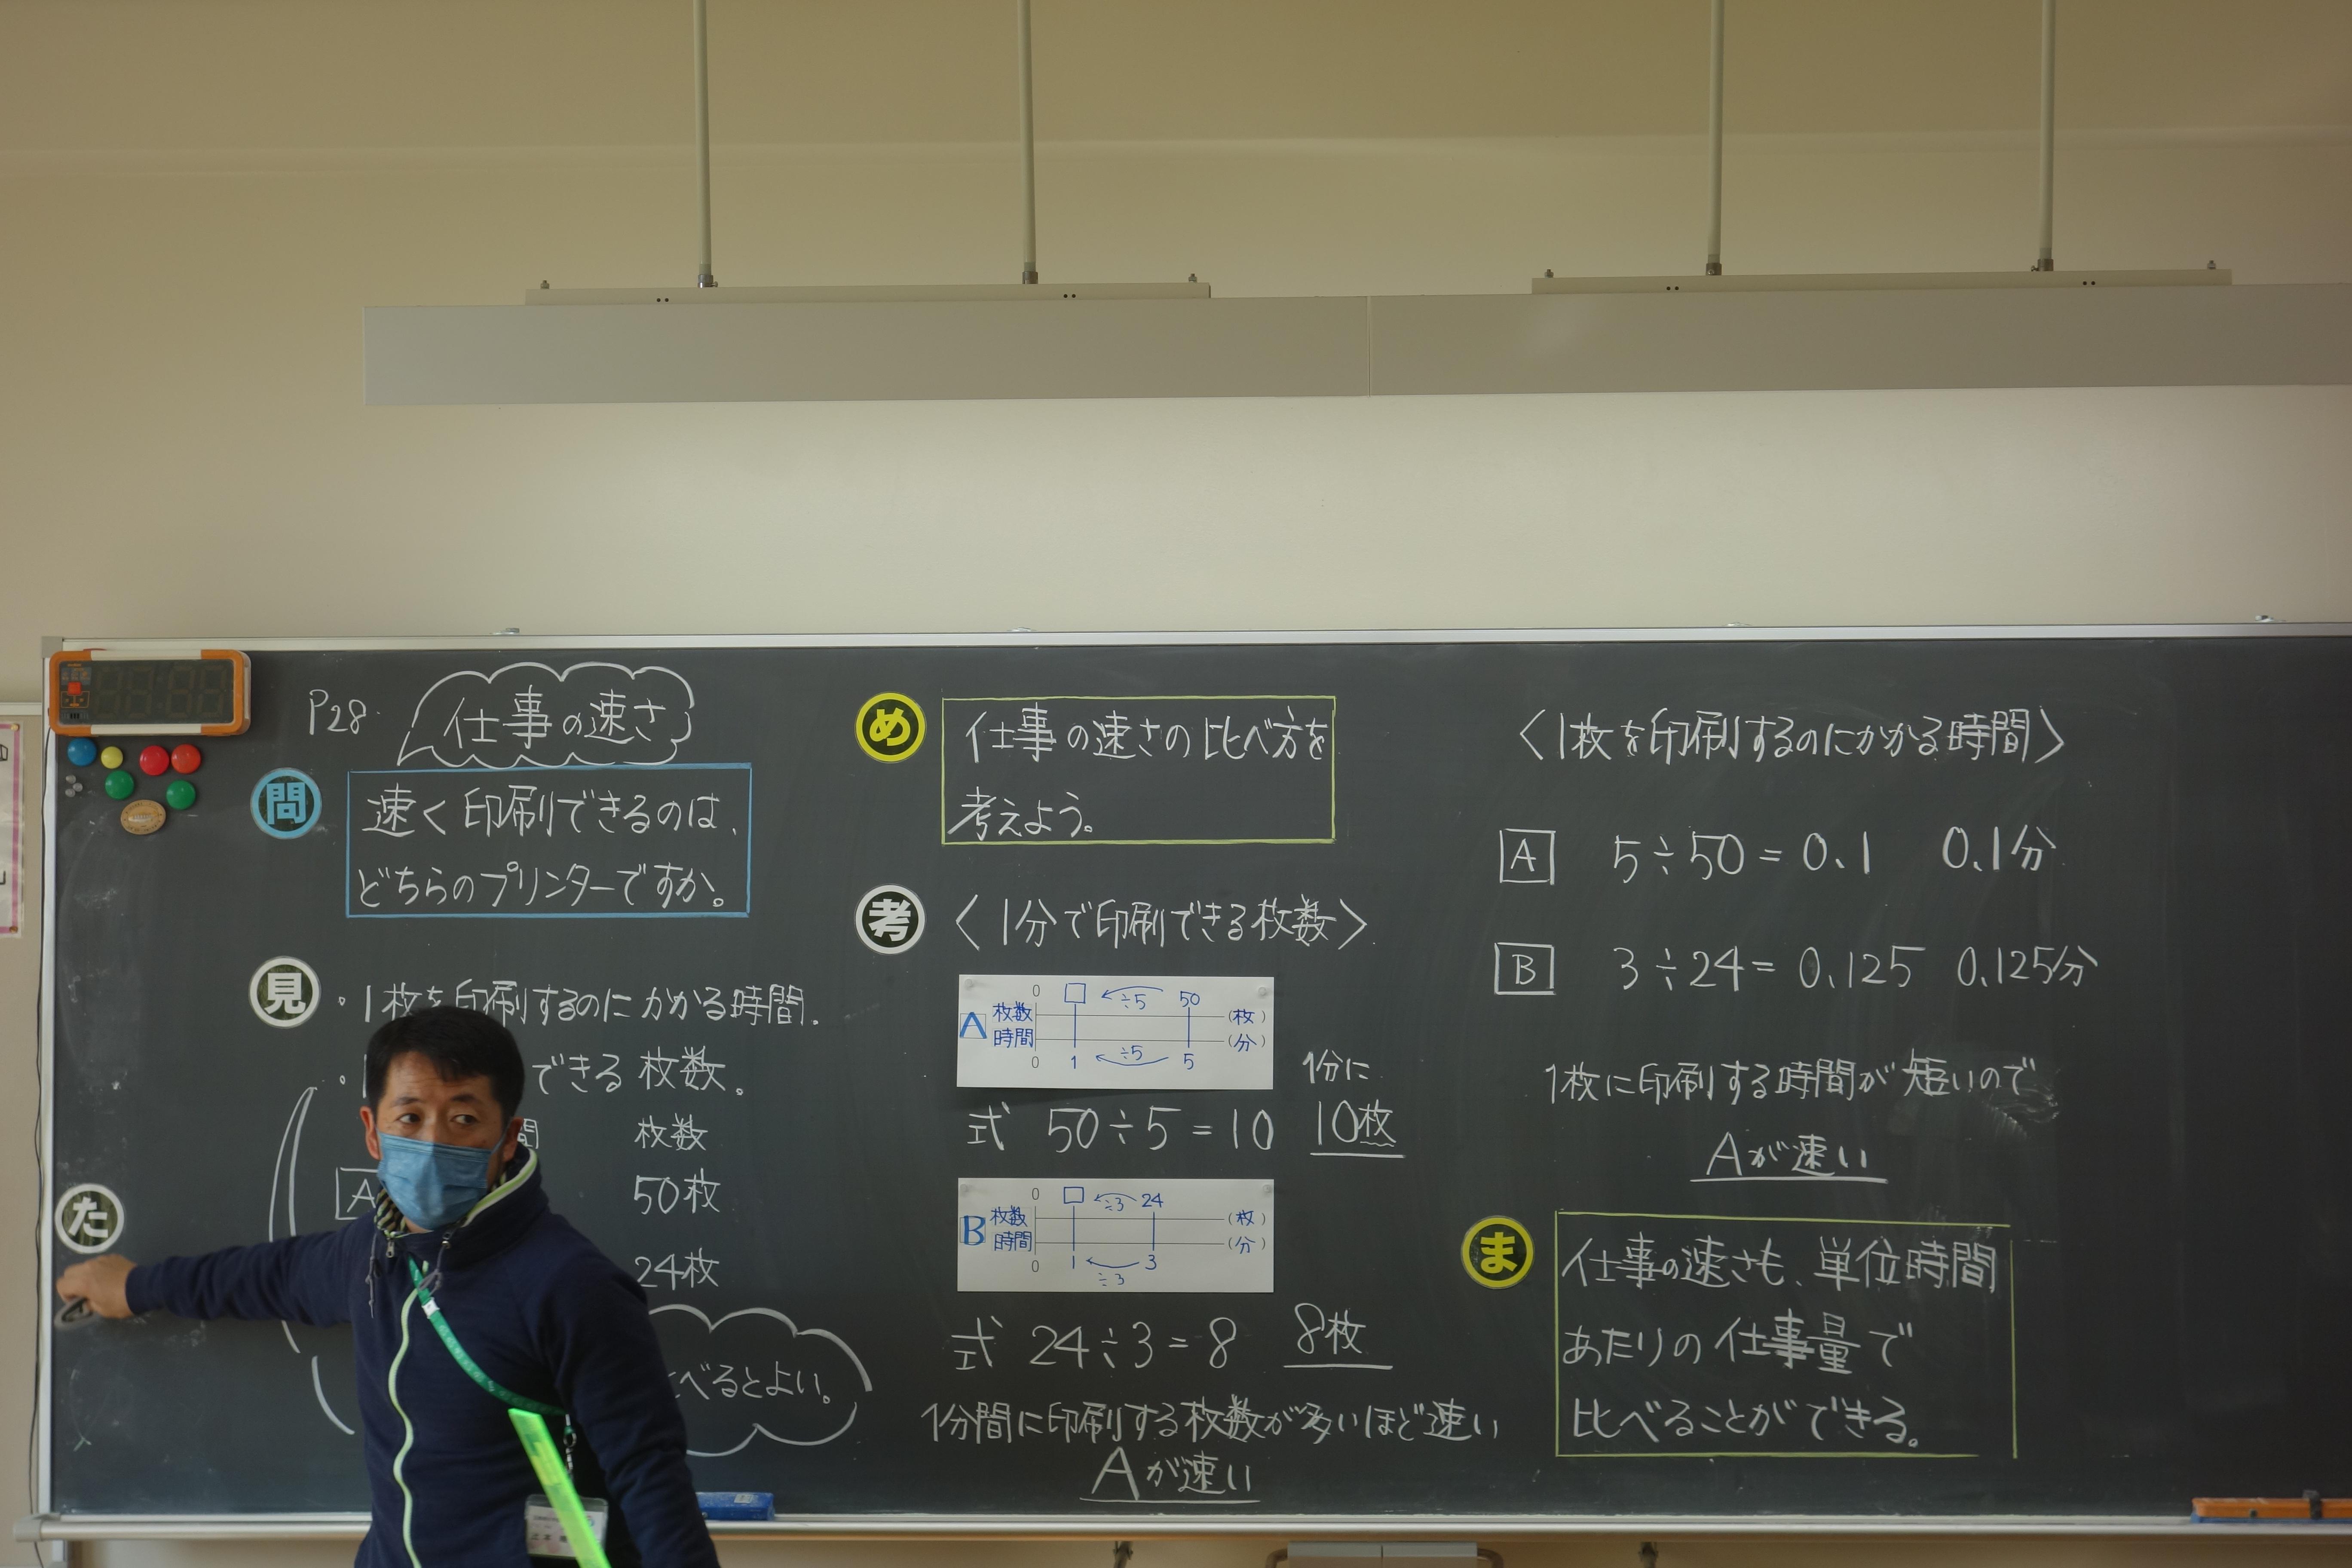 P28
仕事の速さ
問
速く印刷できるのは、
どちらのプリンターですか。
見
・1枚を印刷するのにかかる時間。
できる枚数。
間 枚数
A 50枚
24枚
べるとよい。
た
め
仕事の速さの比べ方を
考えよう。
考
〈1分で印刷できる枚数〉
0 □ ÷5 50
A 枚数 (枚)
時間 (分)
0 1 ÷5 5
1分に
式 50÷5=10 10枚
0 □ ÷3 24
B 枚数 (枚)
時間 (分)
0 1 ÷3 3
式 24÷3=8 8枚
1分間に印刷する枚数が多いほど速い
Aが速い
〈1枚を印刷するのにかかる時間〉
A 5÷50=0.1 0.1分
B 3÷24=0.125 0.125分
1枚に印刷する時間が短いので
Aが速い
ま
仕事の速さも、単位時間
あたりの仕事量で
比べることができる。